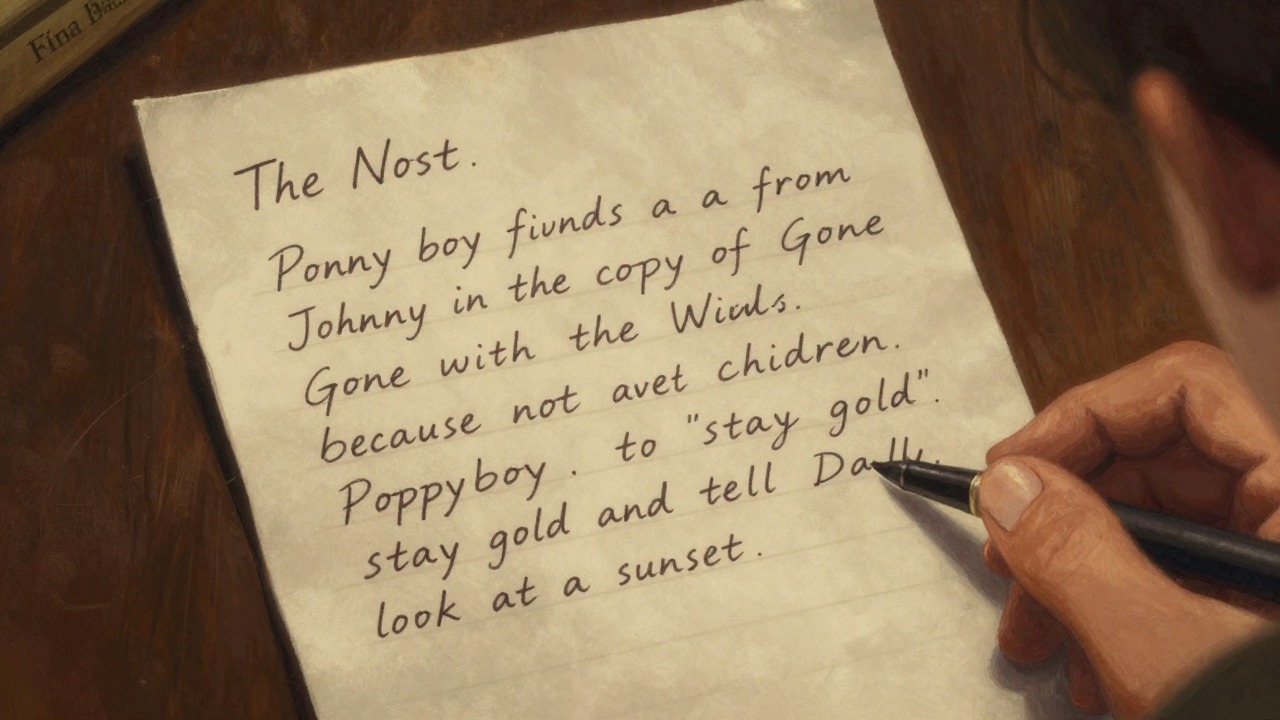 Fina
The Nost.
Ponny boy fiunds a a from
Johnny in the copy of Gone
Gone with the
because not avet chidren.
Poppyboy . to "stay gold".
stay gold and tell Dally.
look at a sunset.